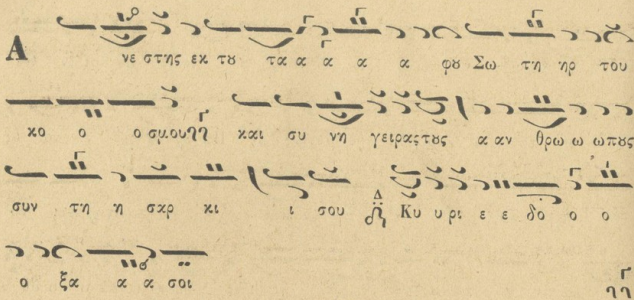 Α νε στης εκ τȣ τα α α α α φȣ Σω τη ηρ του
κο ο ο σμου και συ νη γειρας τȣς α αν θρω ω ωπȣς
συν τη η σαρ κι ι σου Κυ υ ρι ε ε δο ο ο
ο ξα α α σοι